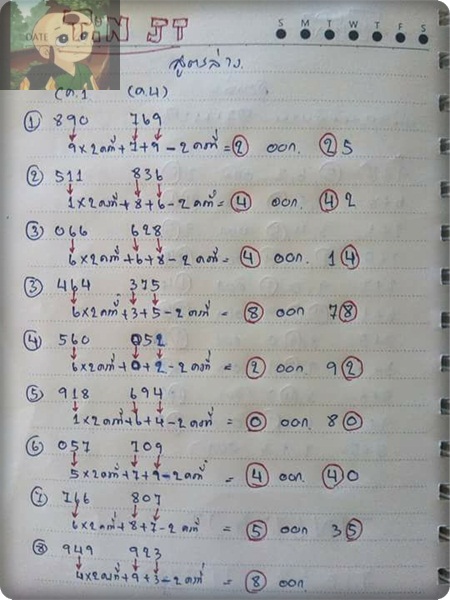 TiN JT
DATE
S M T W T F S
สูตรล่าง
(ต.1 (ต.4)
① 890 769
9×2คงที่+7+9-2คงที่=② ออก. ②5
② 511 836
1×2คงที่+8+6-2คงที่=④ ออก. ④2
③ 066 628
6×2คงที่+6+8-2คงที่=④ ออก. 1④
③ 464 375
6×2คงที่+3+5-2คงที่=⑧ ออก 7⑧
④ 560 052
6×2คงที่+0+2-2คงที่=② ออก. 9②
⑤ 918 694
1×2คงที่+6+4-2คงที่=⓪ ออก. 8⓪
⑥ 057 709
5×2คงที่+7+9-2คงที่=④ ออก. ④0
⑦ 766 807
6×2คงที่+8+7-2คงที่=⑤ ออก 3⑤
⑧ 949 923
4×2คงที่+9+3-2คงที่=⑧ ออก.